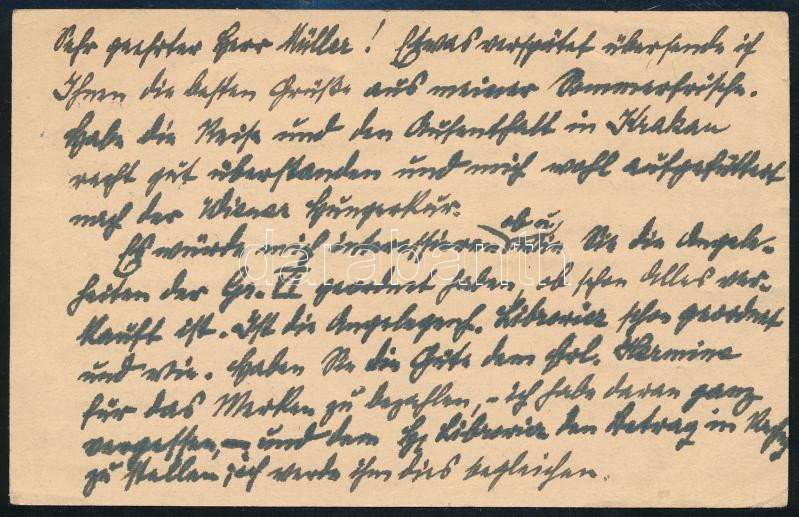 Sehr geehrter Herr Müller! Etwas verspätet übersende ich
Ihnen die besten Grüße aus meiner Sommerfrische.
Habe die Reise und den Aufenthalt in Krakau
recht gut überstanden und mich wohl aufgefüttert
nach der Wiener Hungerkur.
Es würde mich interessieren ob u. Sie die Angele-
heiten der Gr. VI geordnet haben, ob schon Alles ver-
kauft ist. Ist die Angelegenh. schon geordnet
und wie. Haben Sie die Güte dem Frl. Hermine
für das Merken zu bezahlen, – ich habe daran ganz
vergessen, – und dem H. den Betrag in
zu stellen, ich werde ihm dies begleichen.
darabanth